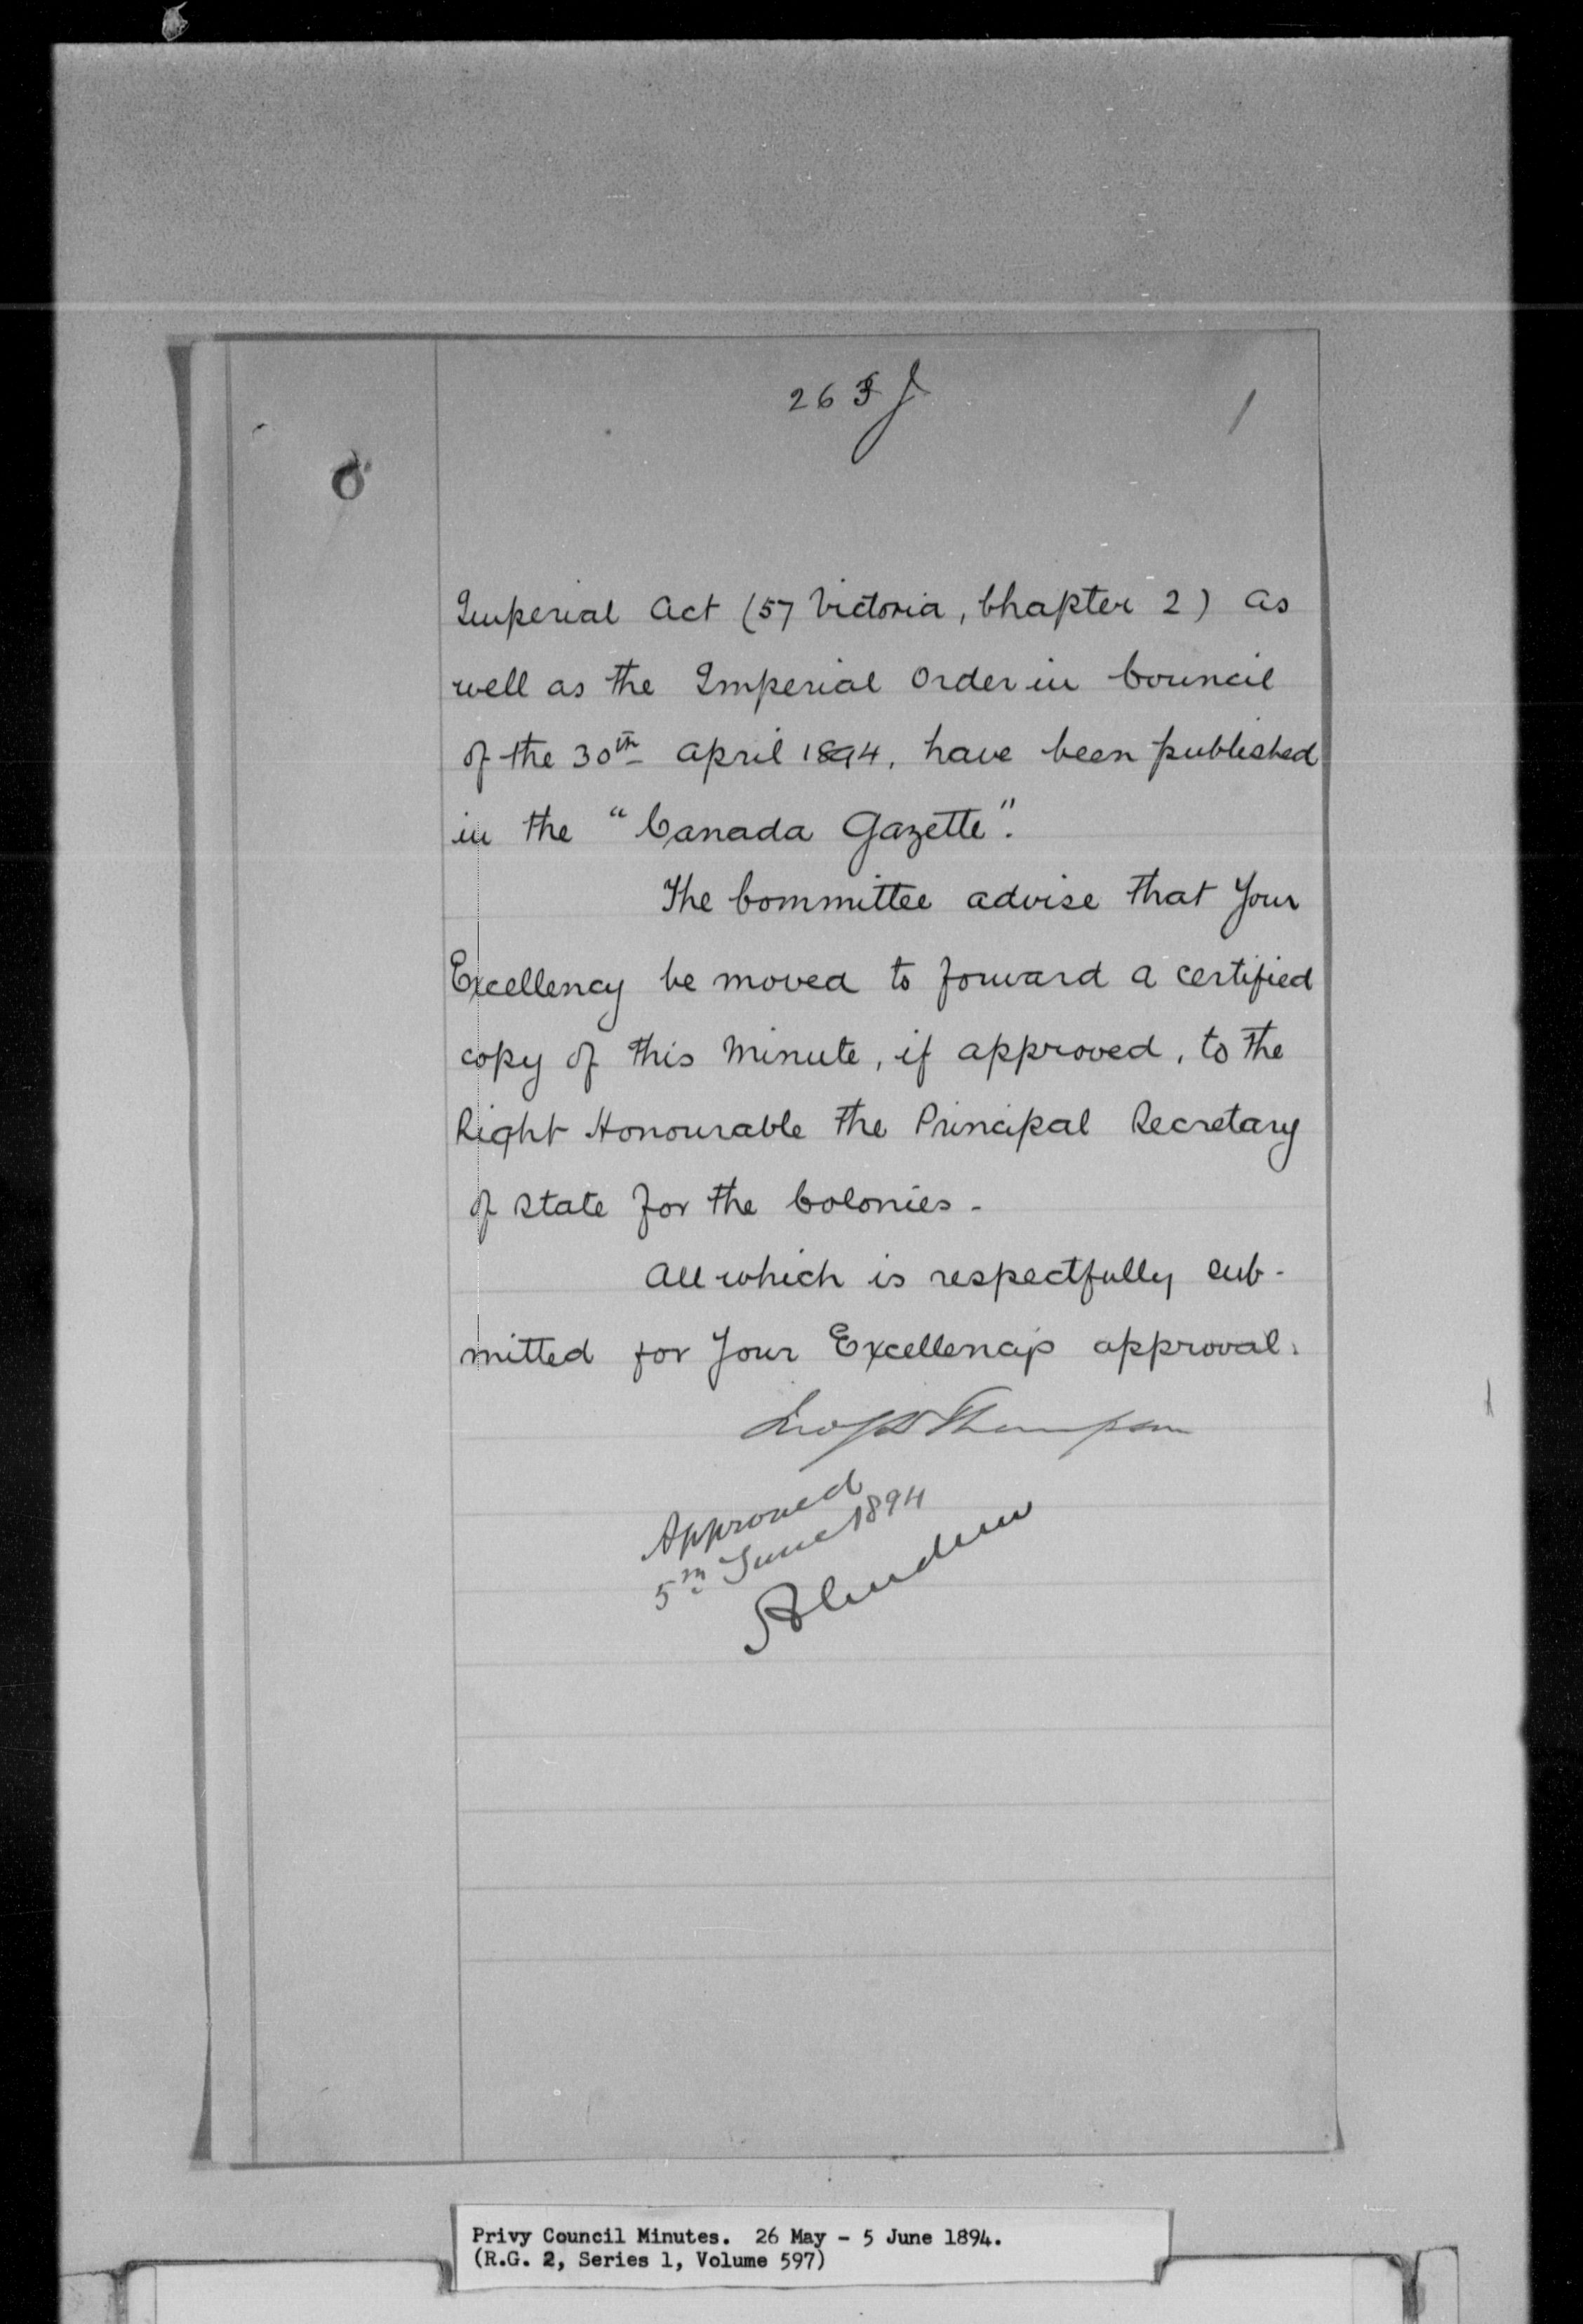 263 J
Imperial Act (57 Victoria, Chapter 2) as
well as the Imperial Order in Council
of the 30th April 1894, have been published
in the "Canada Gazette".
The Committee advise that Your
Excellency be moved to forward a certified
copy of this Minute, if approved, to the
Right Honourable the Principal Secretary
of State for the Colonies.
All which is respectfully sub-
mitted for Your Excellency's approval.
Jno S D Thompson
Approved
5th June 1894
Aberdeen
Privy Council Minutes. 26 May - 5 June 1894.
(R.G. 2, Series 1, Volume 597)